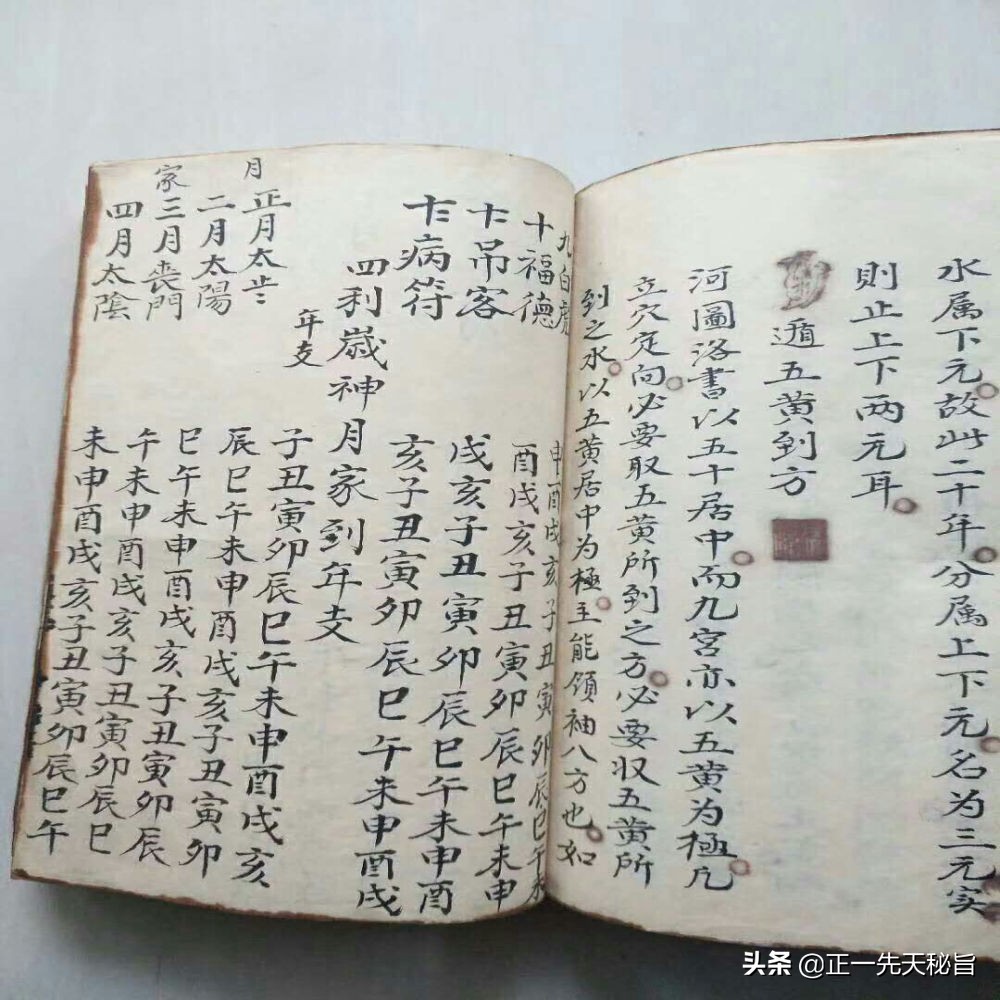 水属下元。故此二十年。分属上下元。名为三元实
則止上下两元耳。
遁五黄到方
河圖洛書以五十居中。而九宫亦以五黄为極。凡
立穴定向。必要取五黄所到之方。必要収五黄所
到之水。以五黄居中为極。主能領袖八方也。如
九白虎 申酉戌亥子丑寅卯辰巳午未
十福德 酉戌亥子丑寅卯辰巳午未申
吊客 戌亥子丑寅卯辰巳午未申酉
病符 亥子丑寅卯辰巳午未申酉戌
四利歲神月家到年支
年支
月
正月太歲 子丑寅卯辰巳午未申酉戌亥
二月太陽 辰巳午未申酉戌亥子丑寅卯
家
三月喪門 巳午未申酉戌亥子丑寅卯辰
四月太陰 午未申酉戌亥子丑寅卯辰巳
未申酉戌亥子丑寅卯辰巳午
头条 @正一先天秘旨